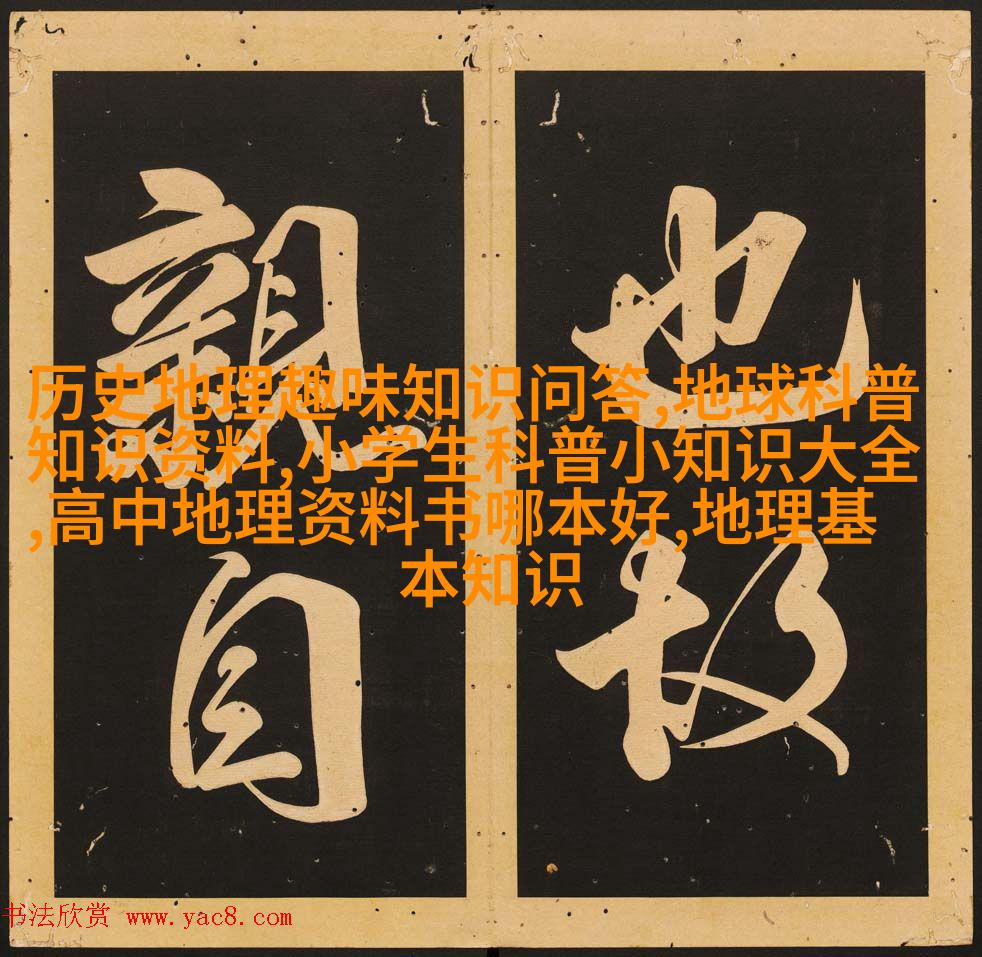 也故
親自
历史地理趣味知识问答,地球科普
知识资料,小学生科普小知识大全
,高中地理资料书哪本好,地理基
本知识
书法欣赏 www.yac8.com